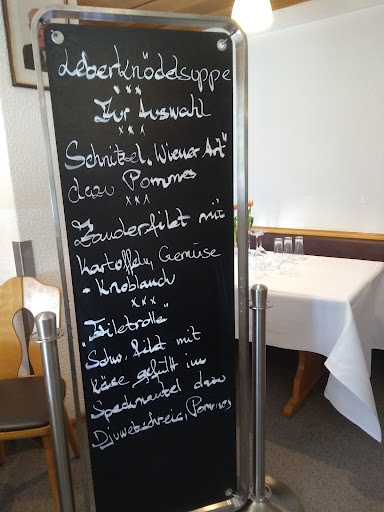 Leberknödelsuppe
xxx
Zur Auswahl
xxx
Schnitzel „Wiener Art"
dazu Pommes
xxx
Zanderfilet mit
Kartoffeln, Gemüse
+ Knoblauch
xxx
„Filetrolle"
Schw. filet mit
Käse gefüllt im
Speckmantel dazu
Djuwetschreis, Pommes